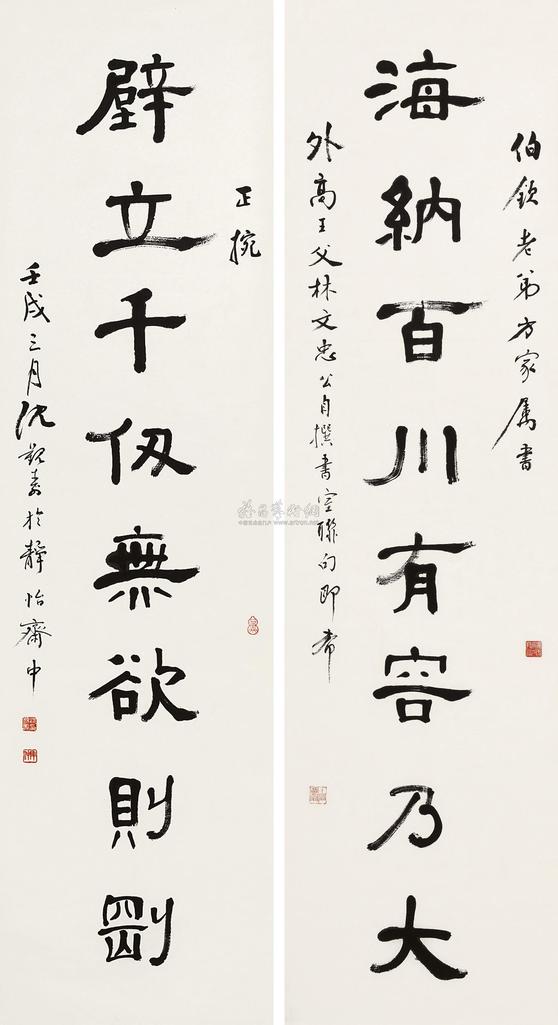 伯欽老弟方家属书
海納百川有容乃大
外高王父林文忠公自撰書室聯句即希
正捥
壁立千仞無欲則剛
壬戌三月沈覲壽於靜怡齋中